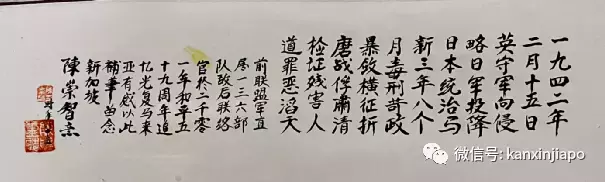 一九四二年
二月十五日
英守军向侵
略日军投降
日本统治马
新三年八个
月毒刑苛政
暴敛横征折
磨战俘肃清
检证残害人
道罪恶滔天
前联盟军直
属一三六部
队政后联络
官於二千零
一年和平五
十九周年追
忆光复马来
亚有感以此
補筆留念
新加坡
陳崇智志
微信号: kanxinjiapo